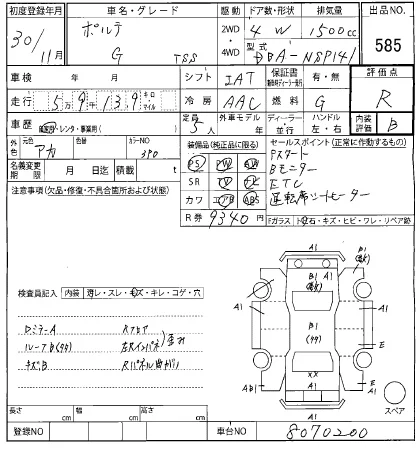 初度登録年月 車名・グレード 駆動 ドア数・形状 排気量 出品NO.
30/11月 ポルテ G TSS 2WD・4WD 4W 1500cc 585
型式 DBA-NSP141
車検 年 月 シフト IAT 保証書 有・無 評価点
走行 5万9千139 キロ マイル 冷房 AAC 燃料 G R
車歴 自家用・レンタ・事業用( ) 定員 5人 外車モデル ディーラー・並行 ハンドル 左・右 内装評価 B
外色 元色 アカ 色替 カラーNO 3P0
名義変更期限 月 日迄 積載 t
装備品(純正品に限る) セールスポイント(正常に作動するもの)
PS PW
SR TV
カワ エアB ABS
Pスタート
Bモニター
ETC
運転席シートヒーター
R券 9340円
Fガラス トビ石・キズ・ヒビ・ワレ・リペア跡
注意事項(欠品・修復・不具合箇所および状態)
検査員記入 内装 汚レ・スレ・キズ・キレ・コゲ・穴
ルーフB
キズB
A1
B1
A1
A1
B1
A1
A1
E
XX
AB1
A1
E
A1
A1
スペア
長さ cm 幅 cm 高さ cm
登録NO 車台NO 8070200